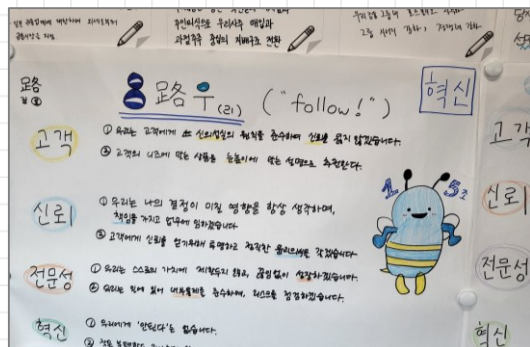 주인의식으로 우리사주 매입과
과점주주 중심의 지배구조 전환
路
길 로
8 路 우 (리) ("follow!")
혁신
고객
① 우리는 고객에게 신의성실의 원칙을 준수하며, 신뢰를 잃지 않겠습니다.
② 고객의 니즈에 맞는 상품을 눈높이에 맞는 설명으로 추천한다.
신뢰
① 우리는 나의 결정이 미칠 영향을 항상 생각하며,
책임을 가지고 업무에 임하겠습니다.
② 고객에게 신뢰를 얻기위해 투명하고 정직한 윤리의식을 갖겠습니다.
15조
전문성
① 우리는 스스로의 가치에 제한두지 않고, 끊임없이 성장하겠습니다.
② 우리는 일에 있어 내부통제를 준수하며, 리스크를 점검하겠습니다.
혁신
① 우리에게 '안된다'는 없습니다.
고객
신뢰
전문성
혁신